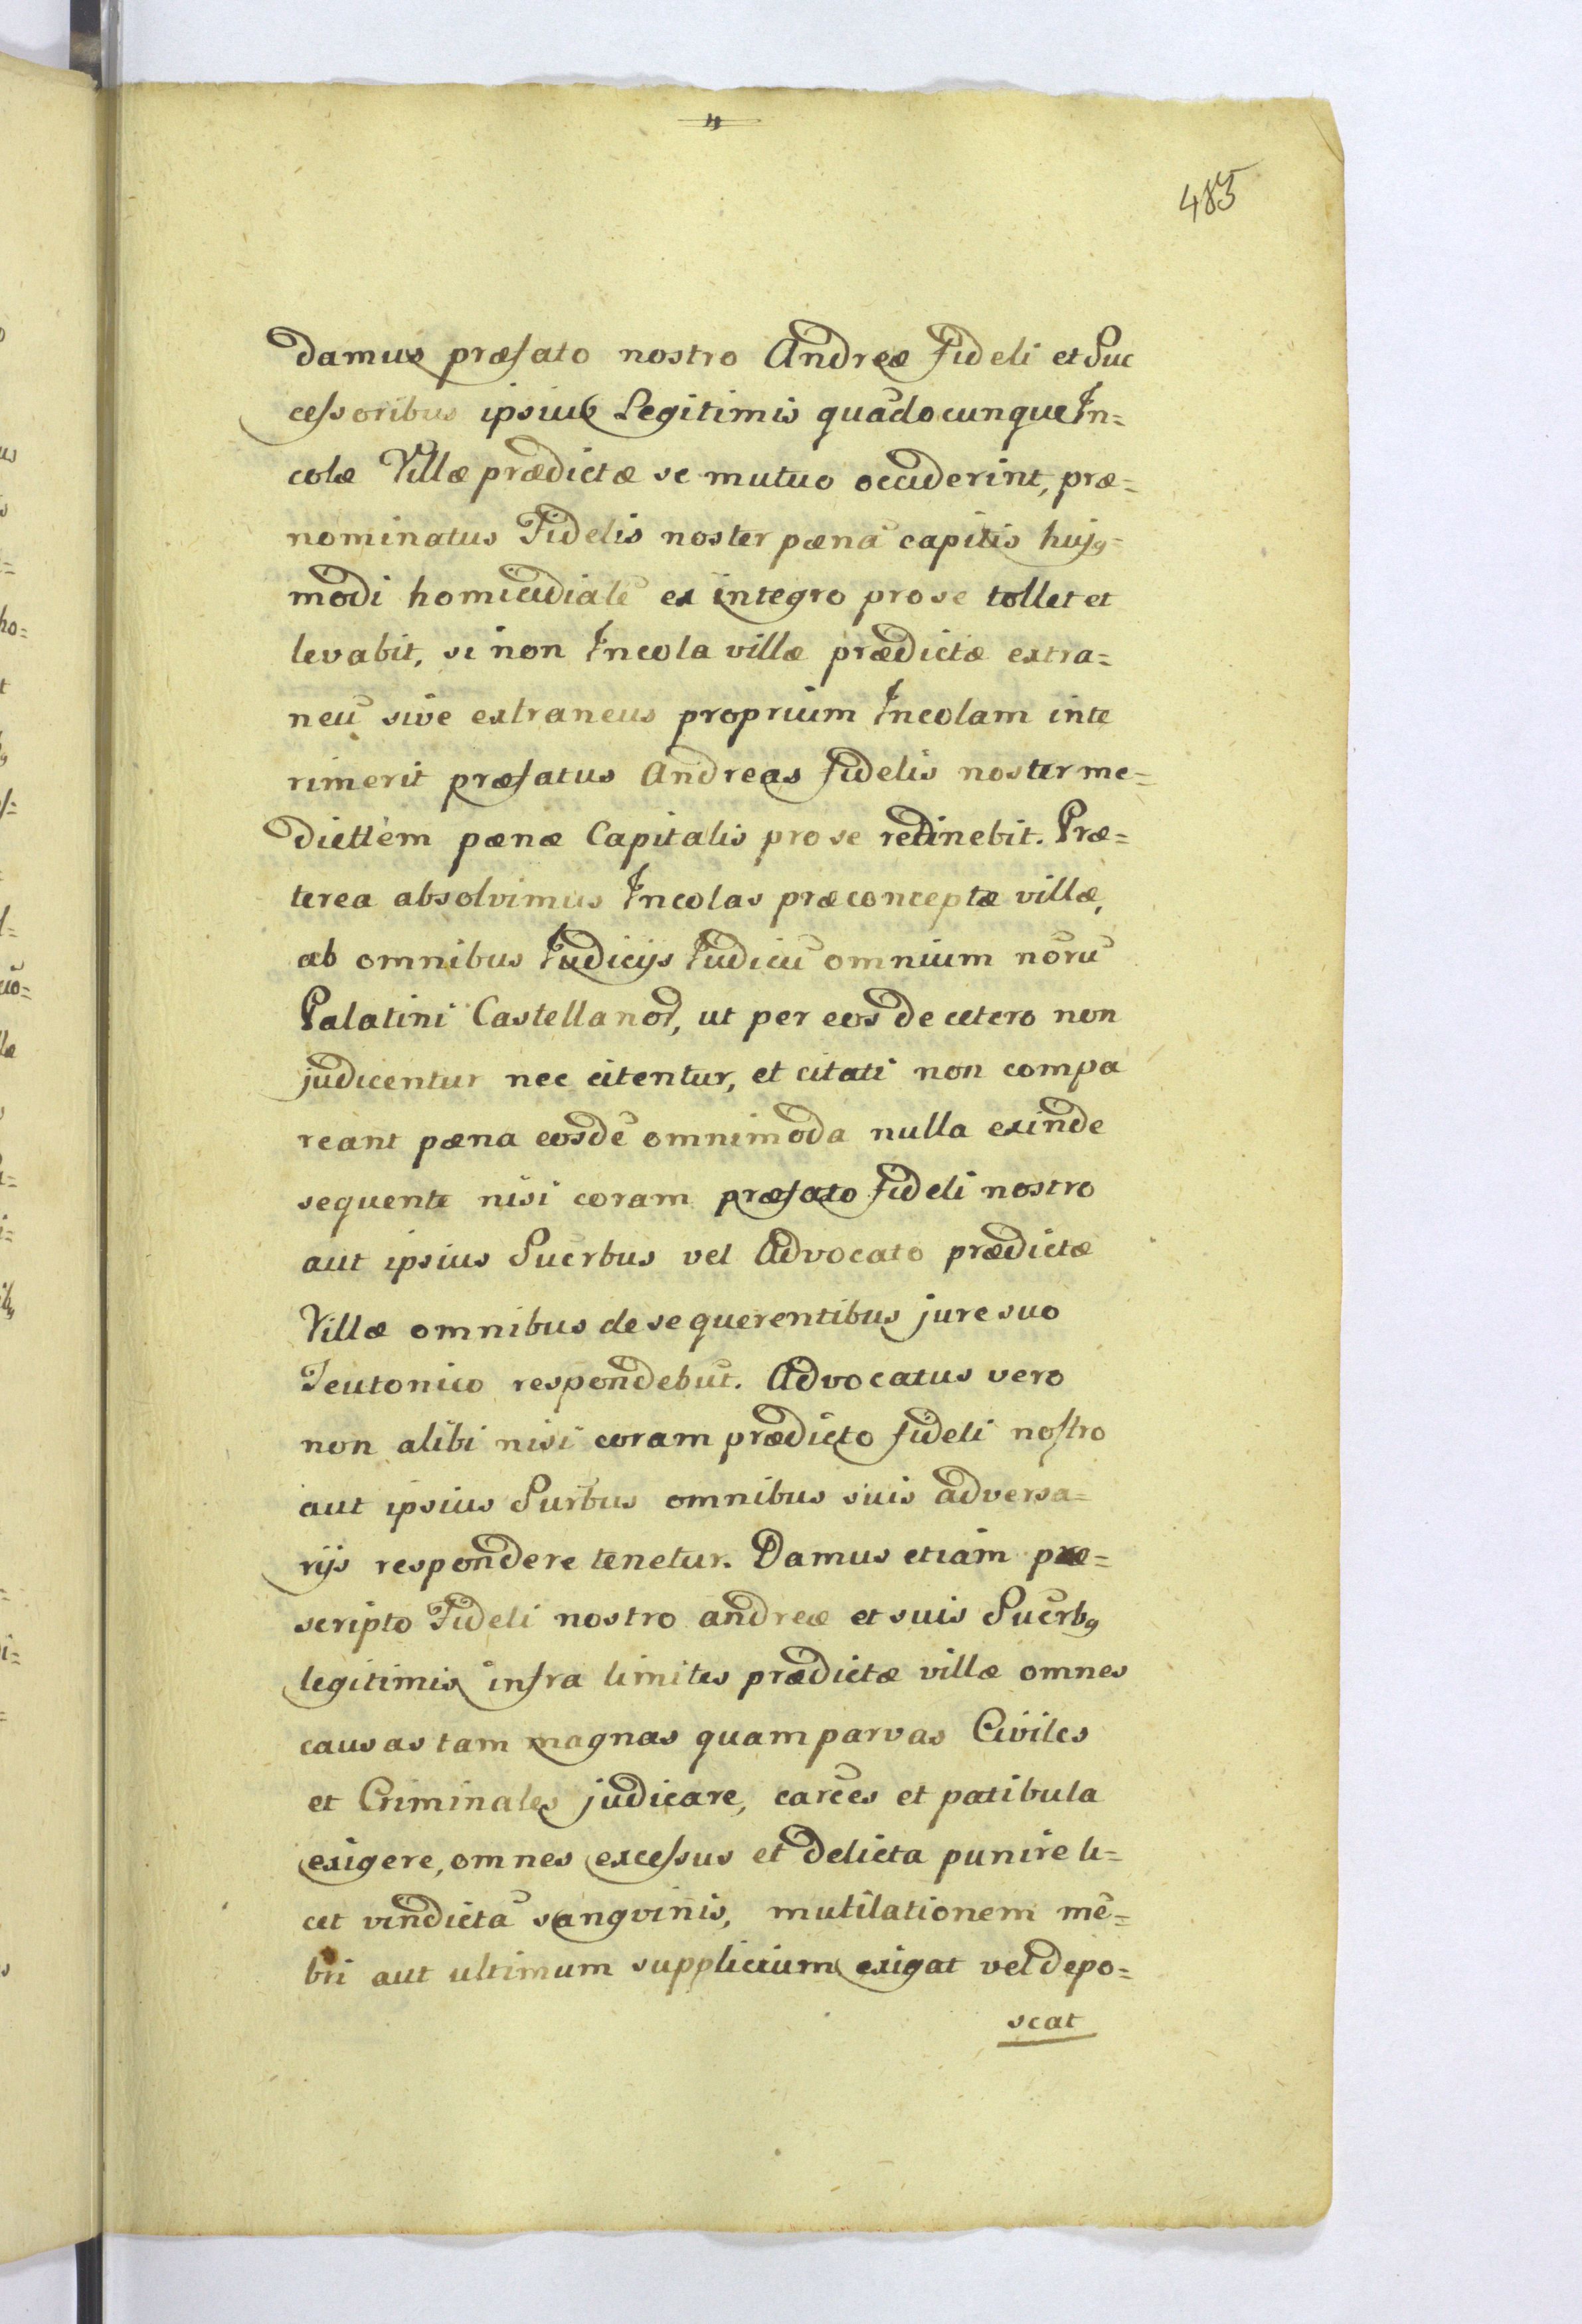 4
485
damus præfato nostro Andreæ Fideli et Suc
cessoribus ipsius Legitimis quādocunque In=
colæ Villæ prædictæ se mutuo occiderint, præ=
nominatus Fidelis noster pænā capitis hujꝰ=
modi homicidialē ex integro pro se tollet et
levabit, si non Incola villæ prædictæ extra=
neū sive extraneus proprium Incolam inte
rimerit præfatus Andreas fidelis noster me=
diettem pænæ Capitalis pro se retinebit. Præ=
terea absolvimus Incolas præconceptæ villæ,
ab omnibus Iudicijs Iudicū omnium nōrū
Palatini Castellanoꝝ, ut per eos de cetero non
judicentur nec citentur, et citati non compa
reant pæna eosdē omnimoda nulla exinde
sequente nisi coram præfato Fideli nostro
aut ipsius Sucrbus vel Advocato prædictæ
Villæ omnibus de se querentibus jure suo
Teutonico respondebūt. Advocatus vero
non alibi nisi coram prædicto fideli nostro
aut ipsius Surbus omnibus suis adversa=
rijs respondere tenetur. Damus etiam præ=
scripto Fideli nostro andreæ et suis Sucrbꝰ
legitimis infra limites prædictæ villæ omnes
causas tam magnas quam parvas Civiles
et Criminales judicare, carc̄es et patibula
exigere, omnes excessus et delicta punire li=
cet vindictā sangvinis, mutilationem mē=
bri aut ultimum supplicium exigat vel depo=
scat